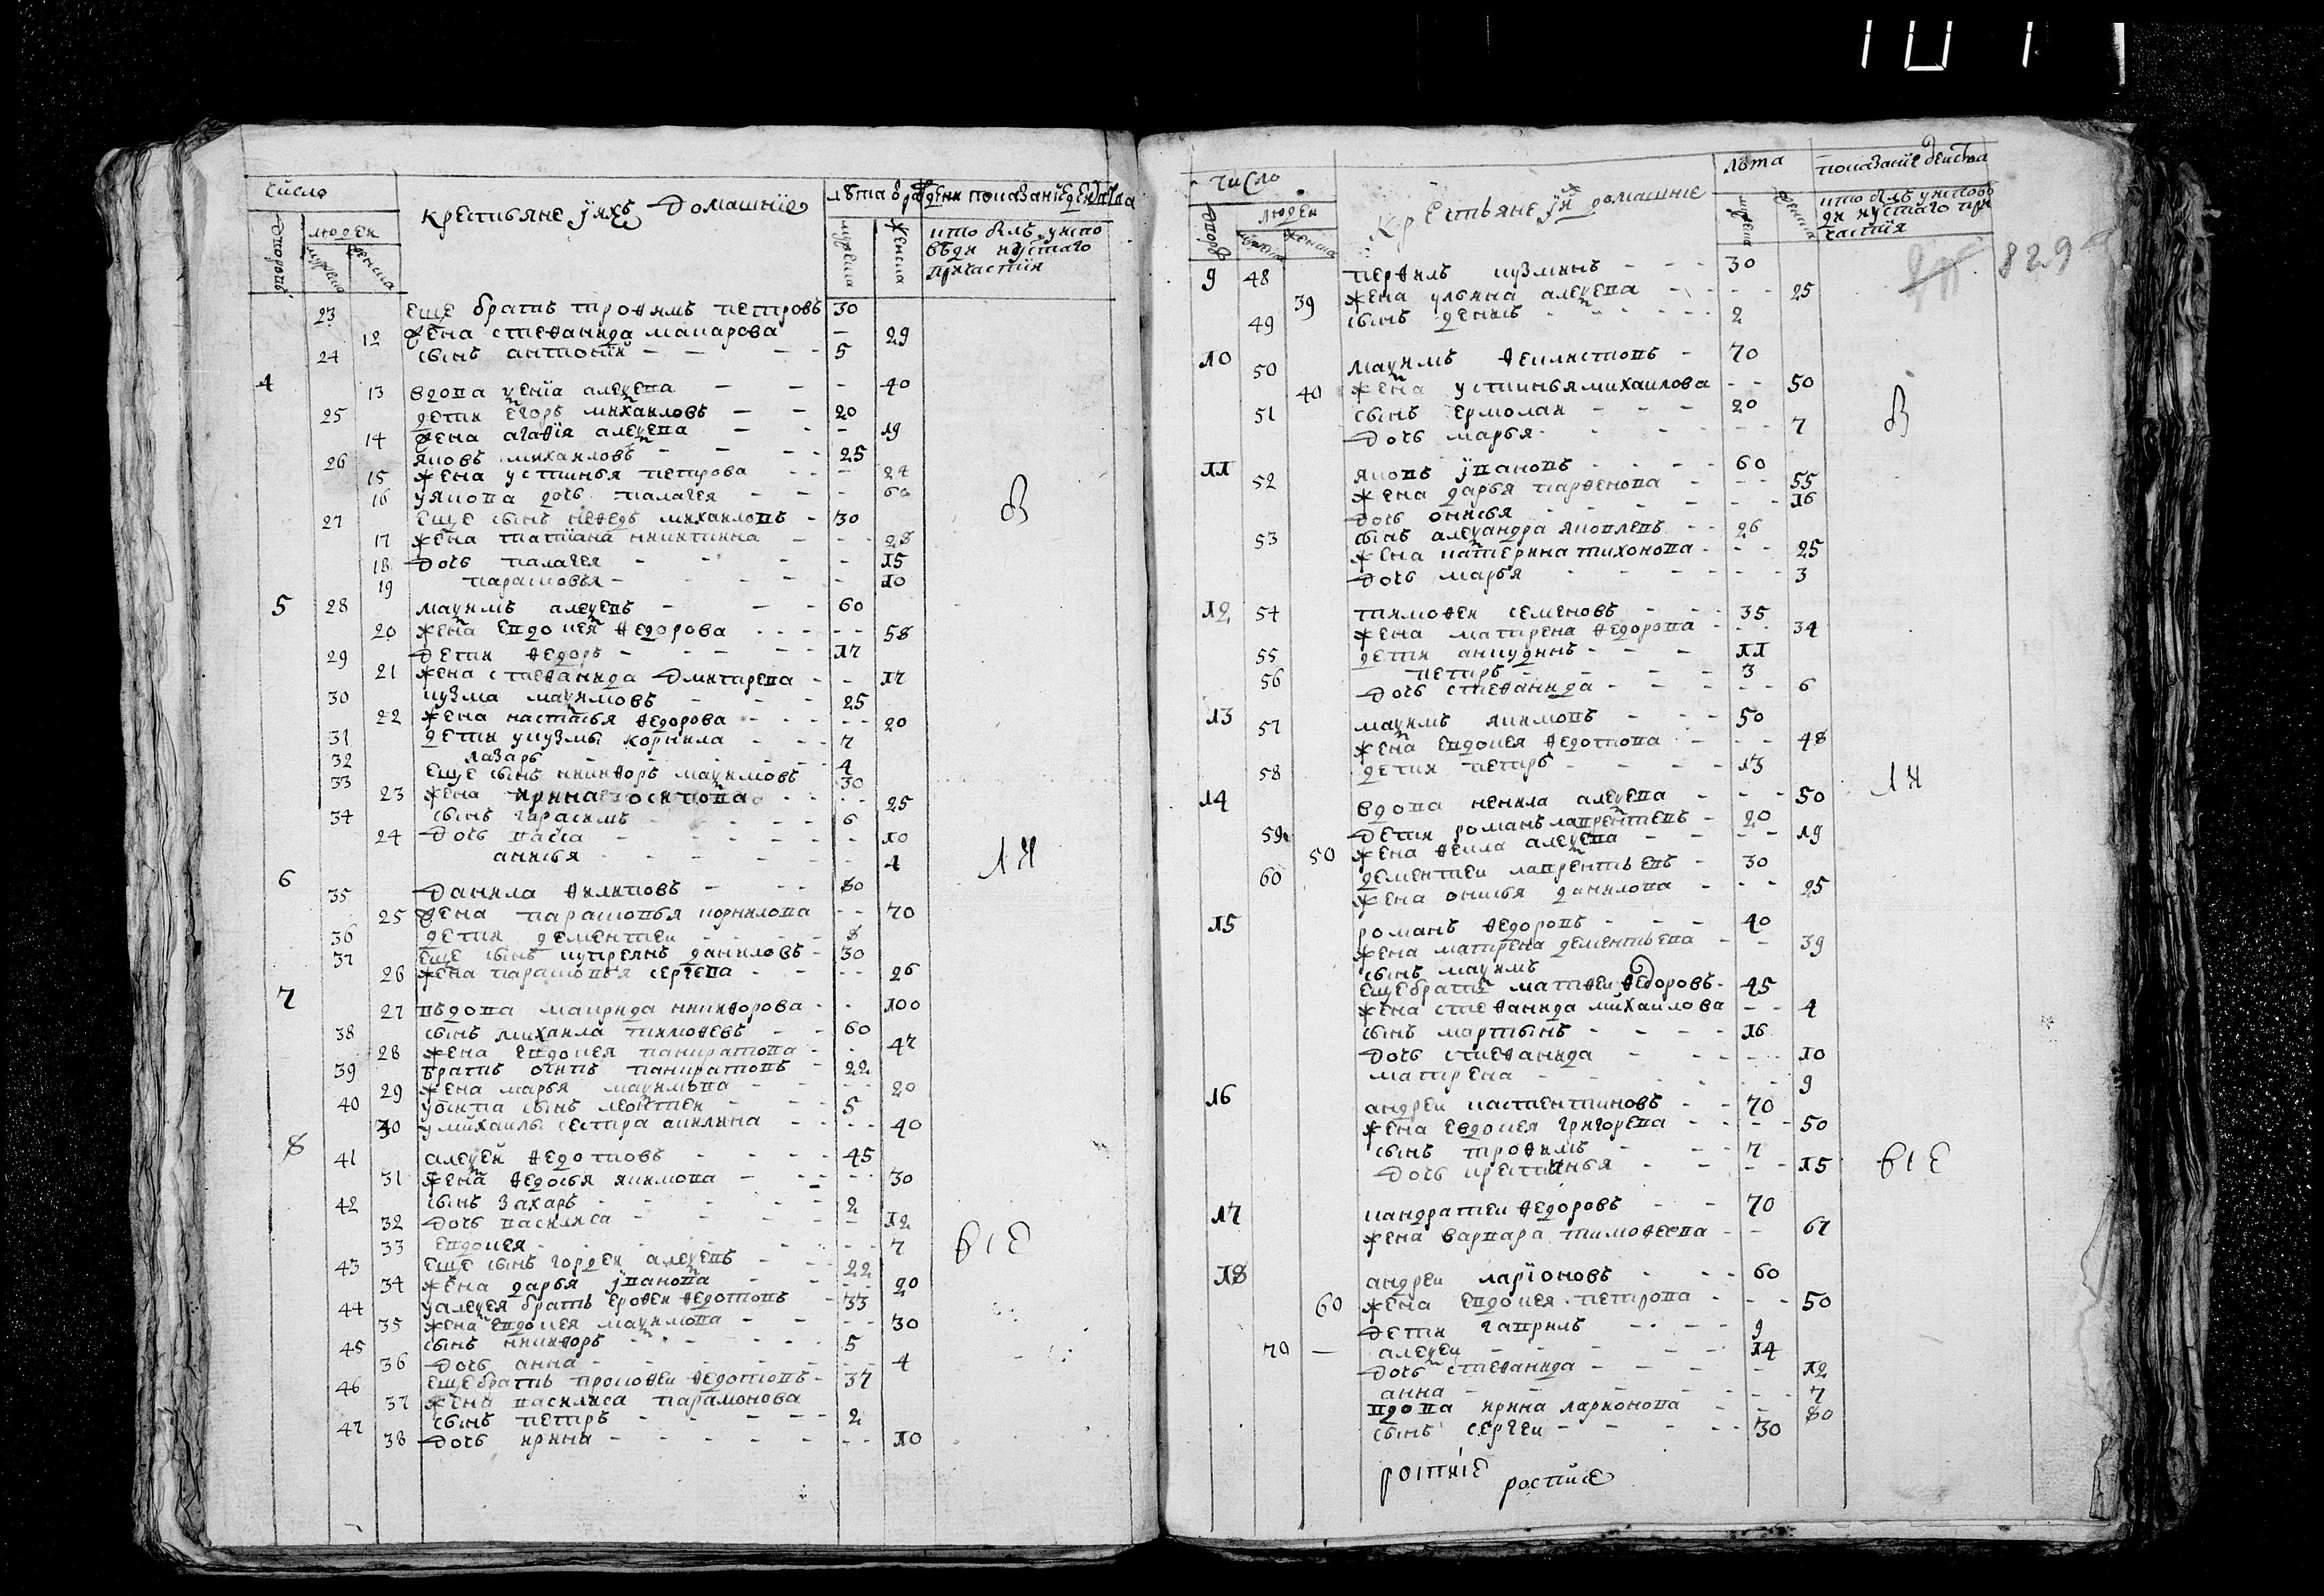 число
крестьяне їихъ домашние
лѣта
показание действа
дворовъ
людеи
мужеска
женска
мужеска
женска
кто былъ уиспо
вѣди исвтаго
причастия
23 еще братъ трофимъ петровъ 30
12 жена степанида макарова — 29
24 сынъ антонїи — — 5
4 13 вдова ксенїа алексеева — — 40
25 дети егоръ михаиловъ — — 20
14 жена агафїя алексеева — — 19
26 яковъ михаиловъ — — 25
15 жена устинья петрова — 24
16 уякова дочь палагея — — 60
27 еще сынъ нефедъ михаиловъ — 30
17 жена татїана никитина — — 28
18 дочь палагея — — 15
19 парасковья — — 10
5 28 маѯимъ алеѯевъ — — 60
20 жена евдокея федорова — — 58
29 дети федоръ — — 17
21 жена степанида дмитрева — — 17
30 кузма маѯимовъ — — 25
22 жена настасья федорова — — 20
31 дети укузмы корнила — — 7
32 лазарь — — 4
33 еще сынъ никифоръ маѯимовъ 30
23 жена ирина осипова — — 25
34 сынъ гарасимъ — — 6
24 дочь васса — — 10
анисья — — 4
6 35 данила филиповъ — — 80
25 жена парасковья корнилова — — 70
36 дети дементеи — — 8
37 еще сынъ купреянъ даниловъ — 30
26 жена парасковья сергева — — 26
7 27 вѣдова маврида никифорова — — 100
38 сынъ михаила тимофевъ — — 60
28 жена евдокея панкратова — — 47
39 братъ осипъ панкратовъ — 22
29 жена марья маѯимова — — 20
40 уосипа сынъ леонтеи — — 5
30 умихаилы сестра акилина — — 40
8 41 алеѯеи федотовъ — — 45
31 жена федосья якимова — — 30
42 сынъ захаръ — — 2
32 дочь василиса — — 12
33 евдокея — — 7
43 еще сынъ гордеи алеѯевъ — — 22
34 жена дарья їванова — — 20
44 уалеѯея братъ ерофеи федотовъ — 33
35 жена евдокея маѯимова — — 30
45 сынъ никифоръ — — 5
36 дочь анна — — 4
46 еще братъ прокофеи федотовъ — 37
37 жена василиса парамонова
47 сынъ петръ — — 2
38 дочь ирина — — 10
число
крестьяне їи домашние
лѣта
показанїе действа
дворовъ
людеи
мужеска
женска
мужеска
женска
кто былъ уиспове
ди исвтаго при
частїя
829
9 48 перфилъ кузминъ — — 30
39 жена ульяна алеѯева — — 25
49 сынъ денисъ — — 2
10 50 маѯимъ феилистовъ — 70
40 жена устинья михаилова — — 50
51 сынъ ермолаи — — 20
дочь марья — — 7
11 52 яковъ їпановъ — — 60
жена дарья парфенова — — 55
дочь онисья — — 16
53 сынъ алеѯандра яковлевъ — — 26
жена катерина тихонова — — 25
дочь марья — — 3
12 54 тимофеи семеновъ — — 35
жена матрена федорова — — 34
55 дети анкудинъ — — 11
56 петръ — — 3
дочь степанида — — 6
13 57 маѯимъ якимовъ — — 50
жена евдокея федотова — — 48
58 дети петръ — — 13
14 вдова ненила алеѯева — — 50
59 дети романъ лаврентевъ — 20
50 жена фекла алеѯева — — 19
60 дементеи лаврентьевъ — 30
жена онисья данилова — — 25
15 романъ федоровъ — — 40
жена матрена дементьева — — 39
сынъ маѯимъ
еще братъ матфеи федоровъ — 45
жена степанида михаилова — — 4
сынъ мартынъ — — 16
дочь степанида — — 10
матрена — — 9
16 андреи кастентиновъ — — 70
жена евдокея григорева — — 50
сынъ трофимъ — — 7
дочь крестинья — — 15
17 кандратеи федоровъ — — 70
жена варвара тимофеева — — 67
18 андреи ларїоновъ — — 60
60 жена евдокея петрова — — 50
дети гаврилъ — — 9
70 — алеѯеи — — 14
дочь степанида — — 12
анна — — 7
вдова ирина ларионова — — 80
сынъ сергеи — — 30